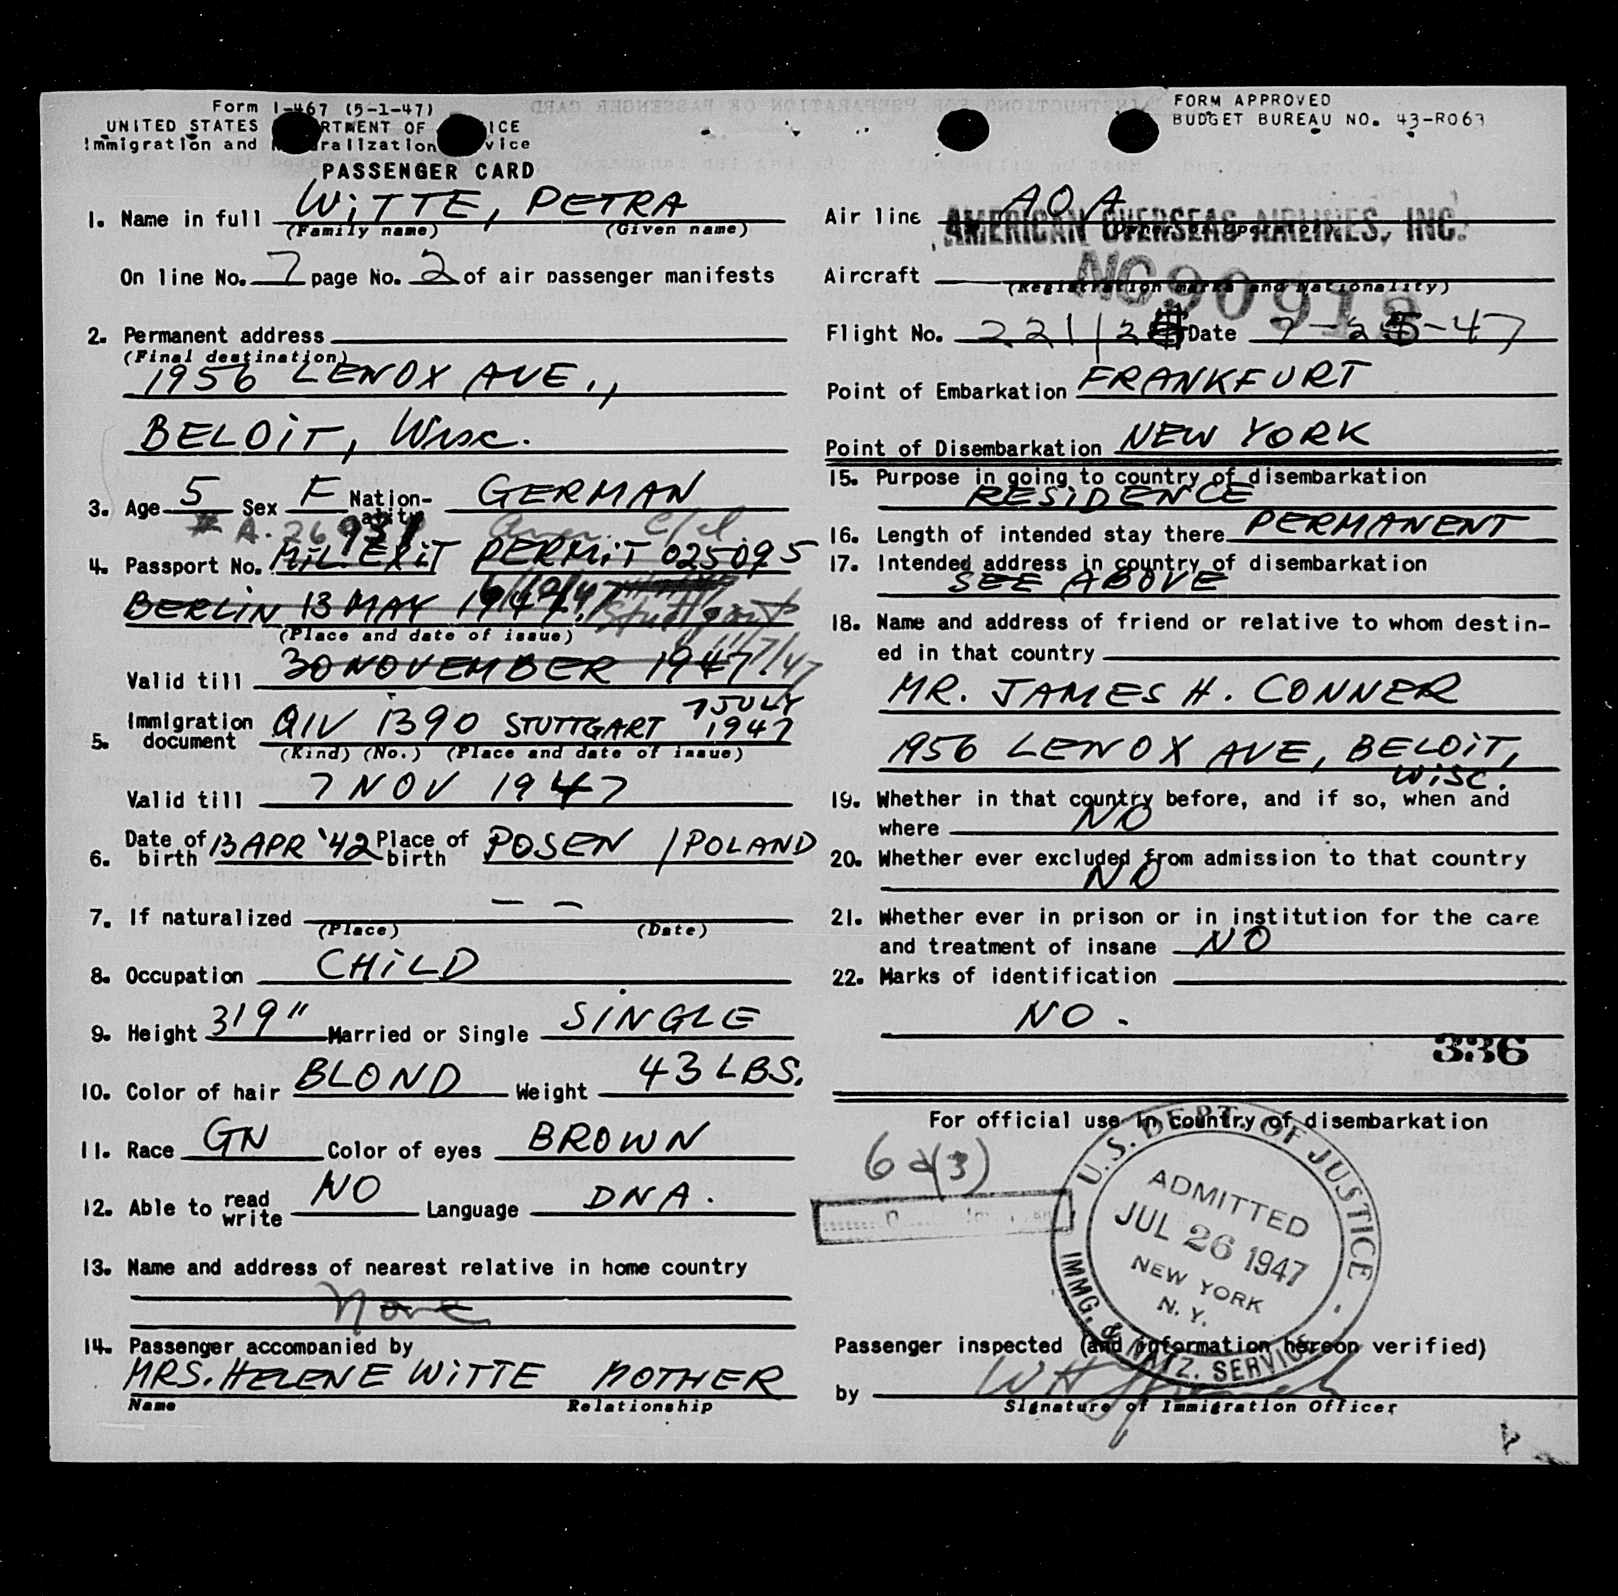 Form I-467 (5-1-47)
UNITED STATES RTMENT OF ICE
Immigration and ralization vice
PASSENGER CARD
1. Name in full WiTTE, PETRA
(Family name) (Given name)
On line No. 7 page No. 2 of air passenger manifests
2. Permanent address
(Final destination)
1956 LENOX AVE.,
BELOiT, Wisc.
3. Age 5 Sex F Nation-ality GERMAN
4. Passport No. MiL. EXiT PERMiT 025095
BERLiN 13 MAY 1947 Stuttgart
(Place and date of issue)
Valid till 30 NOVEMBER 1947
5. Immigration document QIV 1390 STUTTGART 7 JULY 1947
(Kind) (No.) (Place and date of issue)
Valid till 7 NOV 1947
6. Date of birth 13 APR '42 Place of birth POSEN / POLAND
7. If naturalized — —
(Place) (Date)
8. Occupation CHiLD
9. Height 3'9" Married or Single SiNGLE
10. Color of hair BLOND Weight 43 LBS.
11. Race GN Color of eyes BROWN
12. Able to read write NO Language DNA.
13. Name and address of nearest relative in home country
None
14. Passenger accompanied by
MRS. HELENE WiTTE MOTHER
Name Relationship
FORM APPROVED
BUDGET BUREAU NO. 43-R063
Air line AOA
AMERICAN OVERSEAS AIRLINES, INC.
(Owner or operator)
Aircraft NC90913
(Registration marks and Nationality)
Flight No. 221/25 Date 7-25-47
Point of Embarkation FRANKFURT
Point of Disembarkation NEW YORK
15. Purpose in going to country of disembarkation
RESiDENCE
16. Length of intended stay there PERMANENT
17. Intended address in country of disembarkation
SEE ABOVE
18. Name and address of friend or relative to whom destin-
ed in that country
MR. JAMES H. CONNER
1956 LENOX AVE, BELOiT,
WiSC.
19. Whether in that country before, and if so, when and
where NO
20. Whether ever excluded from admission to that country
NO
21. Whether ever in prison or in institution for the care
and treatment of insane NO
22. Marks of identification
NO.
336
For official use in country of disembarkation
6 a(3)
U.S. DEPT. OF JUSTICE
ADMITTED
JUL 26 1947
NEW YORK
N. Y.
IMMG. & NATZ. SERVICE
Passenger inspected (and information hereon verified)
by
Signature of Immigration Officer